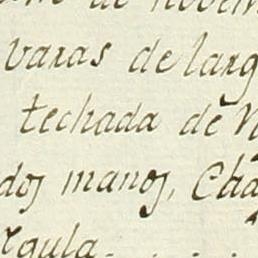 de novem
varas de larg
techada de
dos manos, Cha
gula